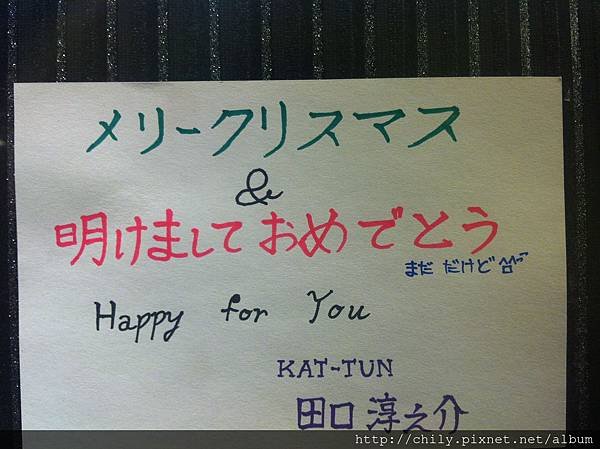 メリークリスマス
&
明けましておめでとう
まだ だけど^合^
Happy for You
KAT-TUN
田口 淳之介
http://chily.pixnet.net/album